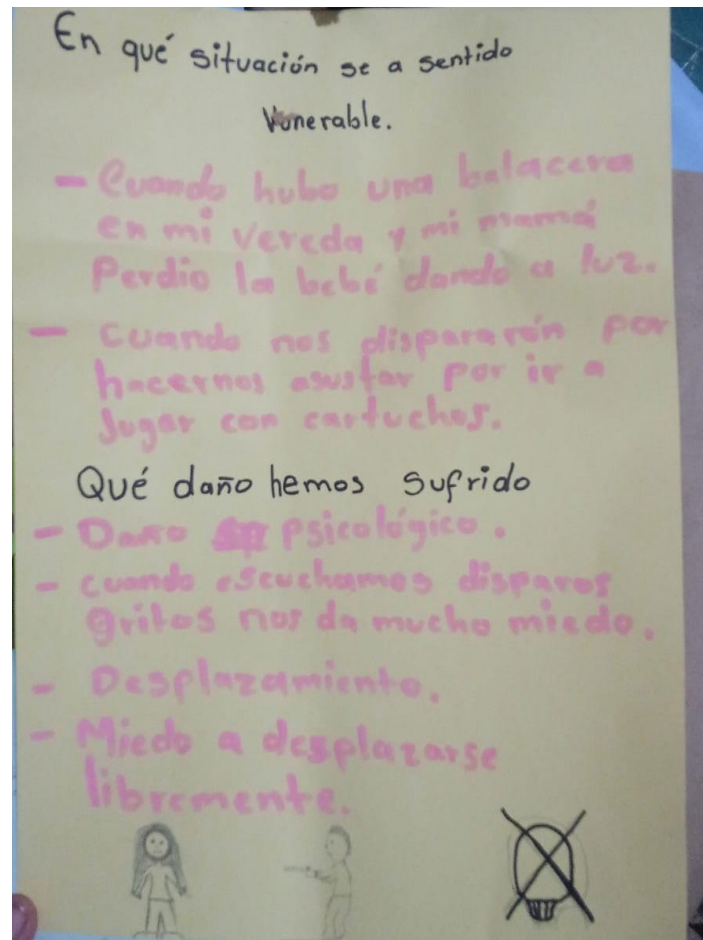 En qué situación se a sentido
Vunerable.
- Cuando hubo una balacera
en mi vereda y mi mamá
Perdio la bebé dando a luz.
- Cuando nos dispararón por
hacernos asustar por ir a
Jugar con cartuchos.
Qué daño hemos sufrido
- Daño psicológico.
- cuando escuchamos disparos
gritos nos da mucho miedo.
- Desplazamiento.
- Miedo a desplazarse
libremente.